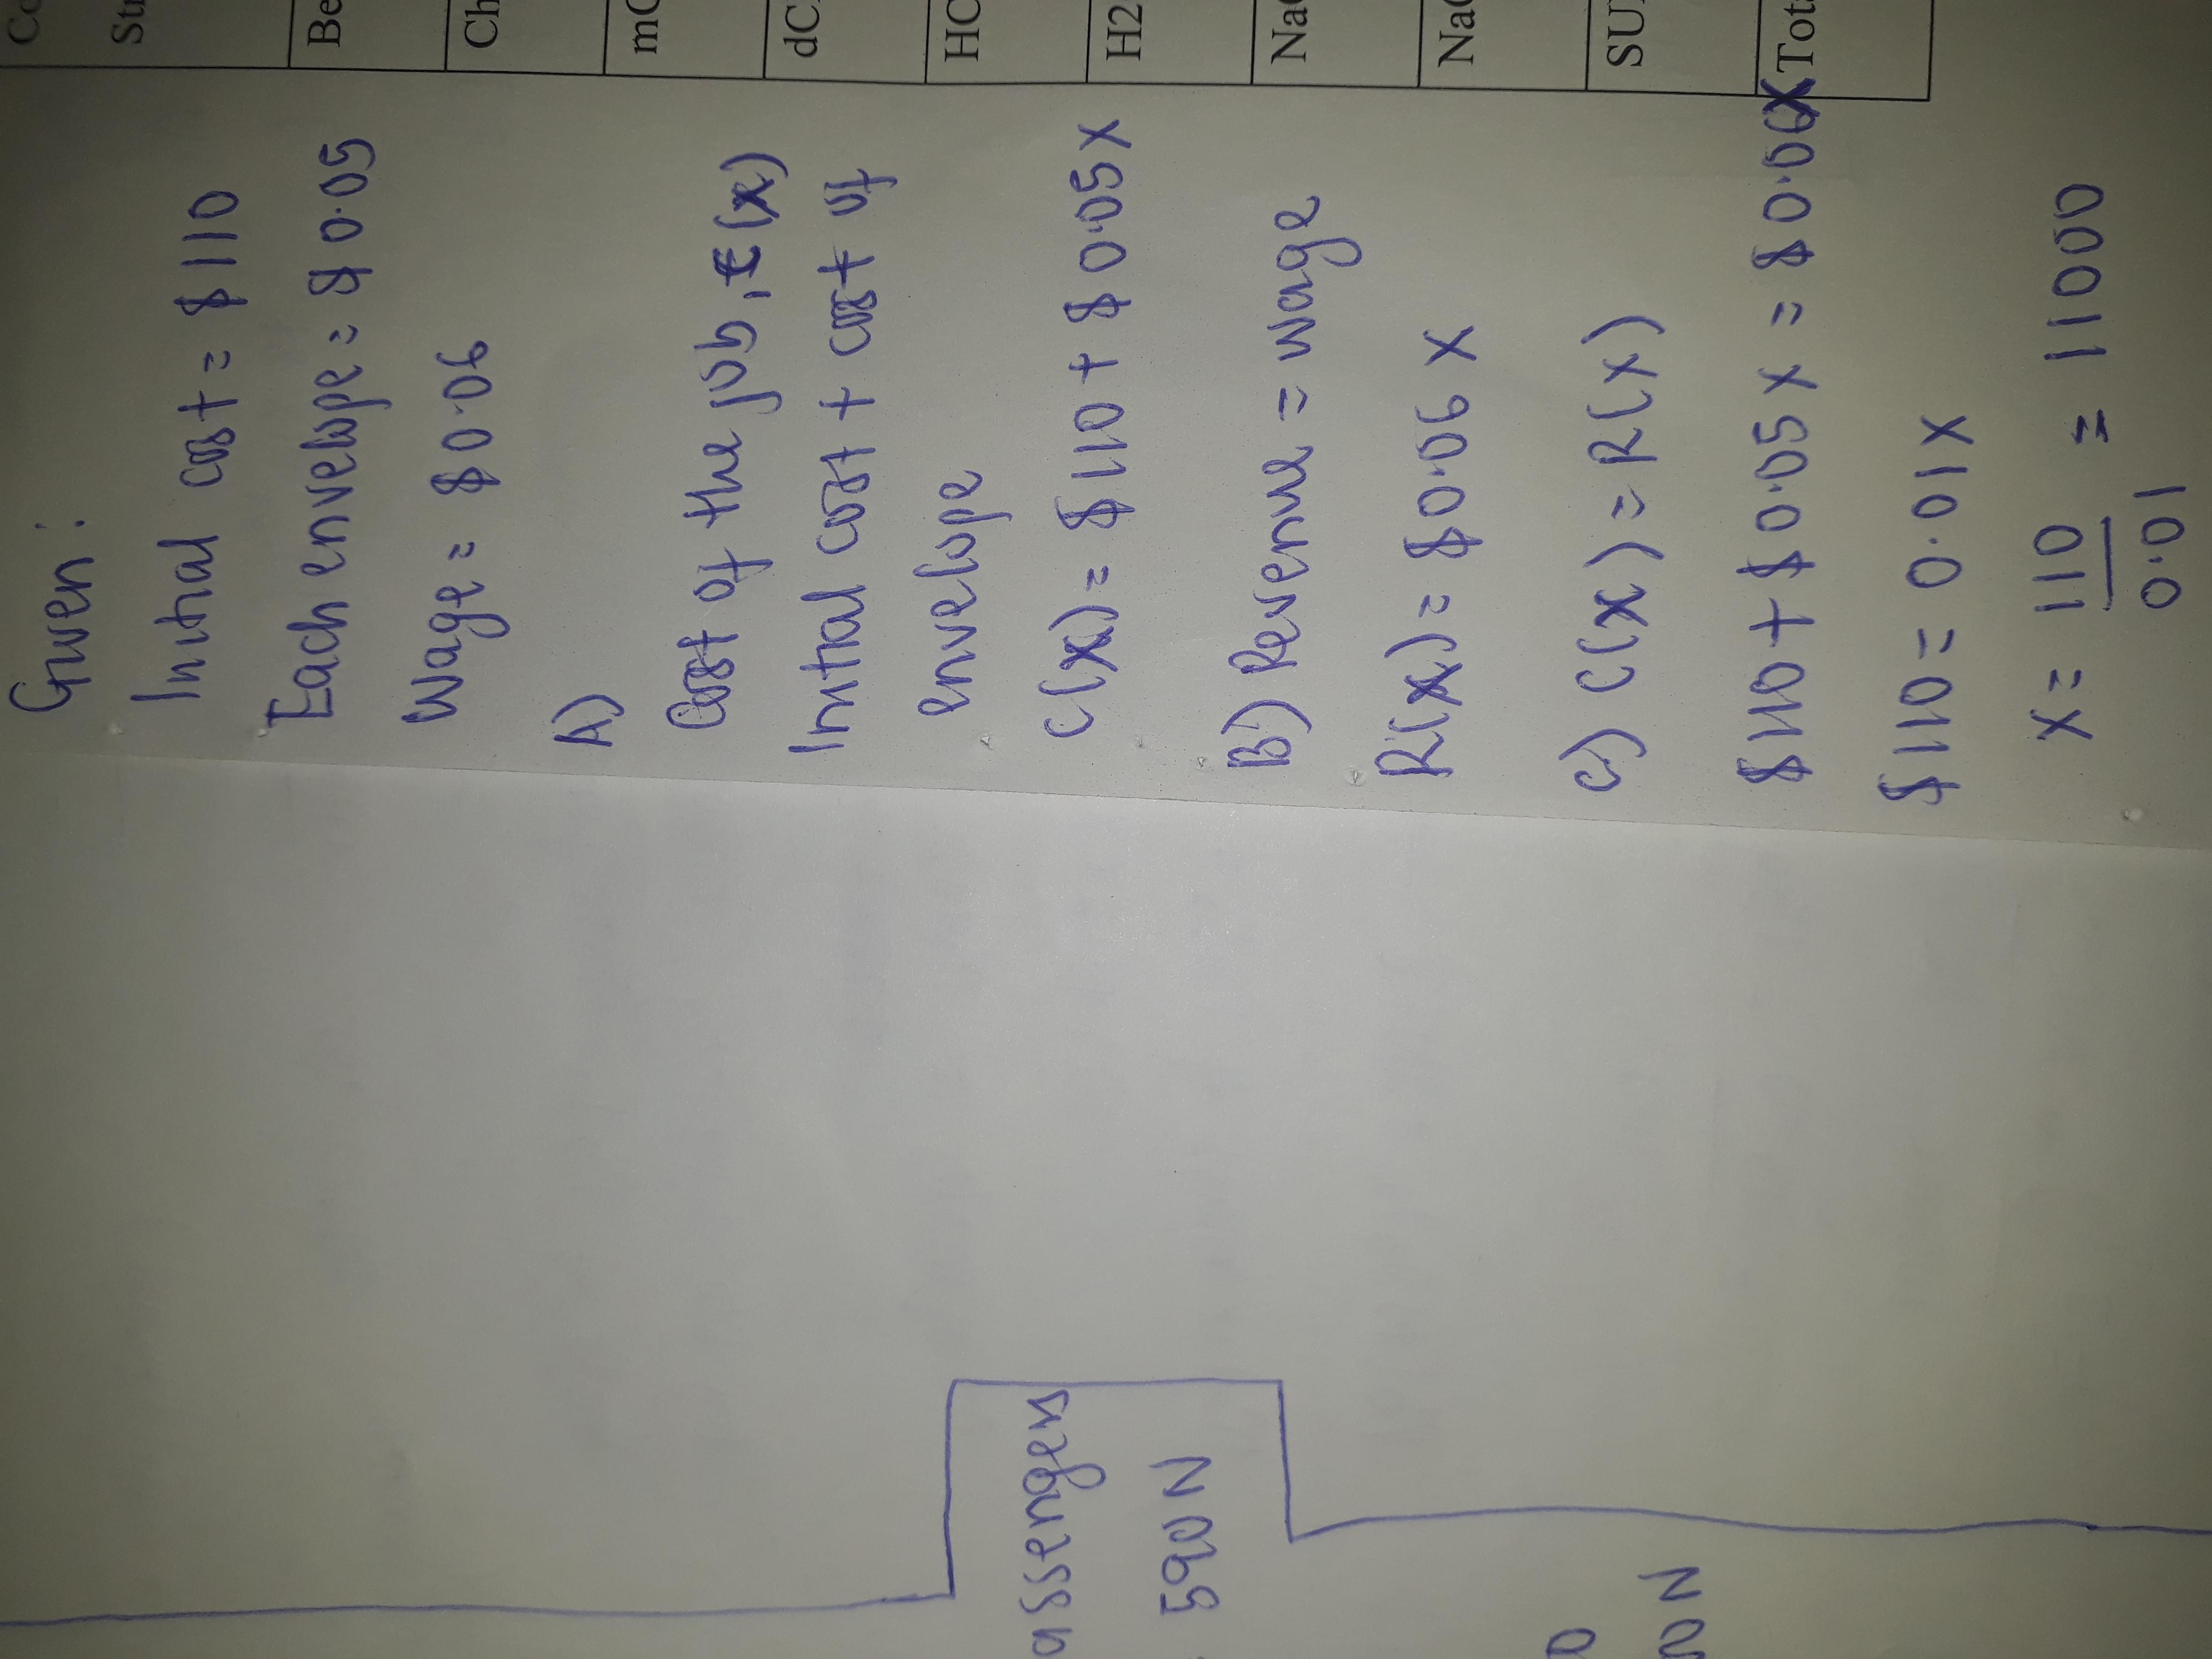 Given:
Initial cost = $110
Each envelope = $0.05
Wage = $0.06
A)
Cost of the job, C(x)
Initial cost + cost of
envelope
C(x) = $110 + $0.05x
B) Revenue = wage
R(x) = $0.06x
C) C(x) = R(x)
$110 + $0.05x = $0.06x
$110 = 0.01x
x = 110 = 11000
0.01
590N
Co
Str
Be
Ch
mC
dC
HC
H2
Na
Na
SU
Tota